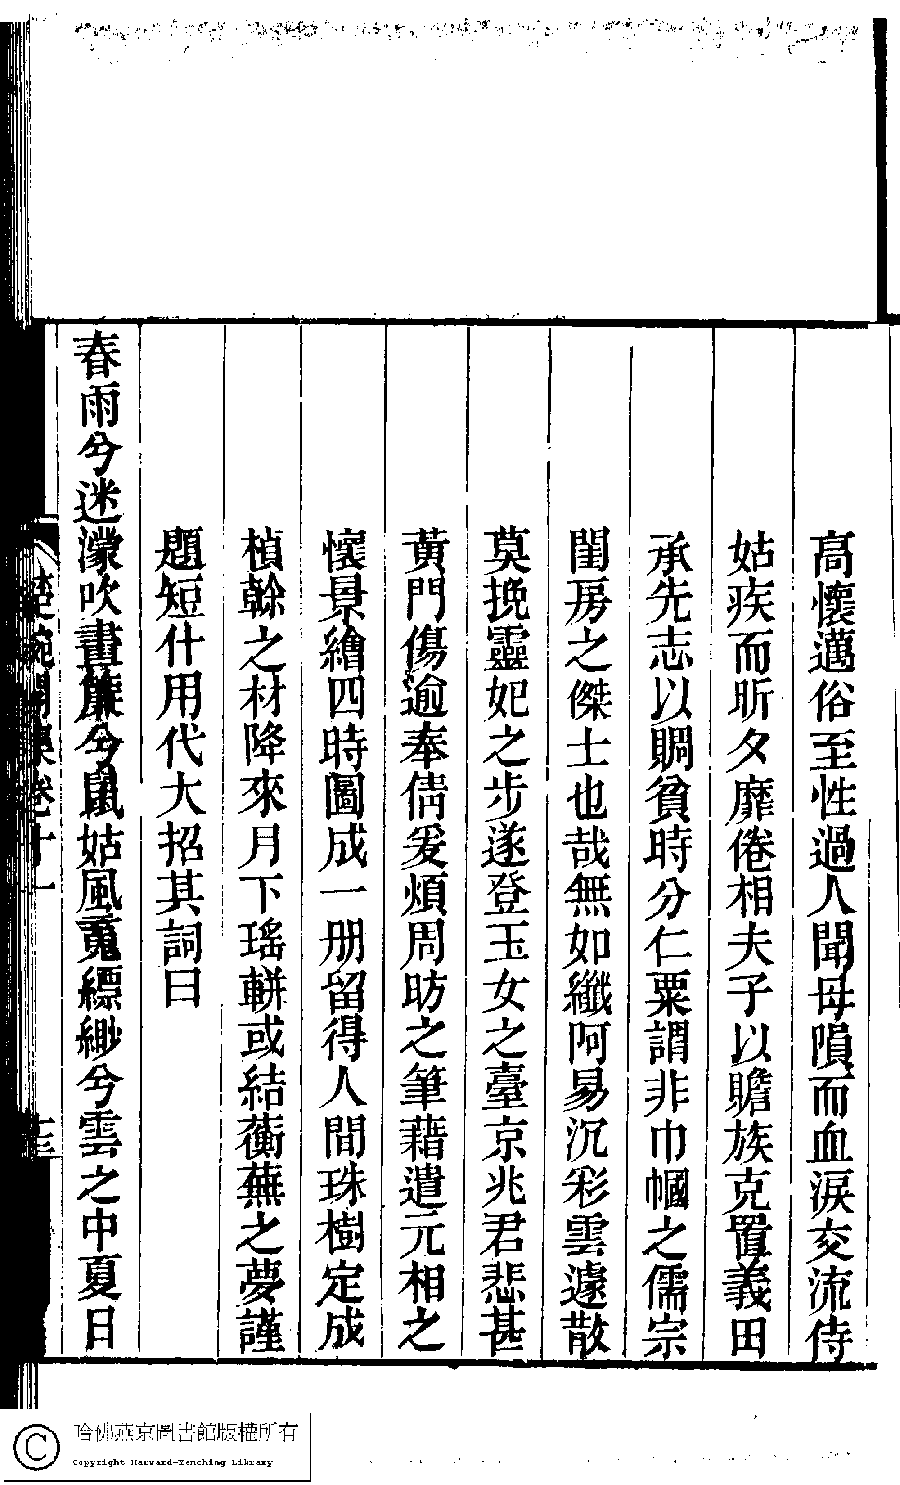 高懷邁俗至性過人聞母隕而血淚交流侍
姑疾而昕夕靡倦相夫子以贍族克置義田
承先志以賙貧時分仁粟謂非巾幗之儒宗
閨房之傑士也哉無如纖阿易沉彩雲遽散
莫挽靈妃之步遂登玉女之臺京兆君悲甚
黃門傷逾奉倩爰煩周昉之筆藉遣元相之
懷景繪四時圖成一册留得人間珠樹定成
楨榦之材降來月下瑤軿或結蘅蕪之夢謹
題短什用代大招其詞曰
春雨兮迷濛吹畫簾兮鼠姑風鬉縹緲兮雲之中夏日
卷十一
十三
哈佛燕京圖書館版權所有
Copyright Harvard-Yenching Library